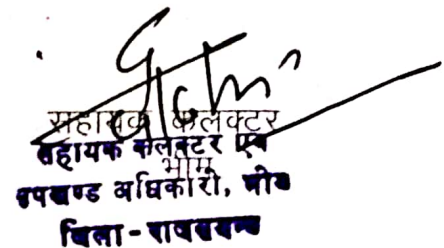 सहायक कलक्टर
सहायक कलक्टर एवं
भीम
उपखण्ड अधिकारी, भीम
जिला - राजसमन्द